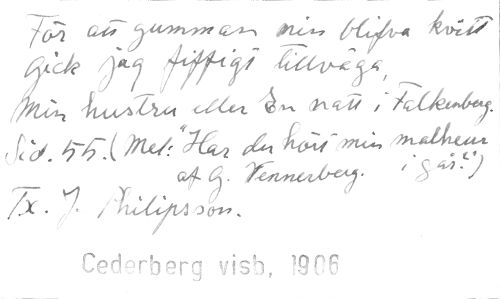 För att gumman min blifva kvitt
gick jag fiffigt tillväga,
Min hustru eller En natt i Falkenberg.
Sid. 55. (Mel: "Har du hört min malheur
af G. Wennerberg. i går?")
Tx. J. Philipsson.
Cederberg visb, 1906